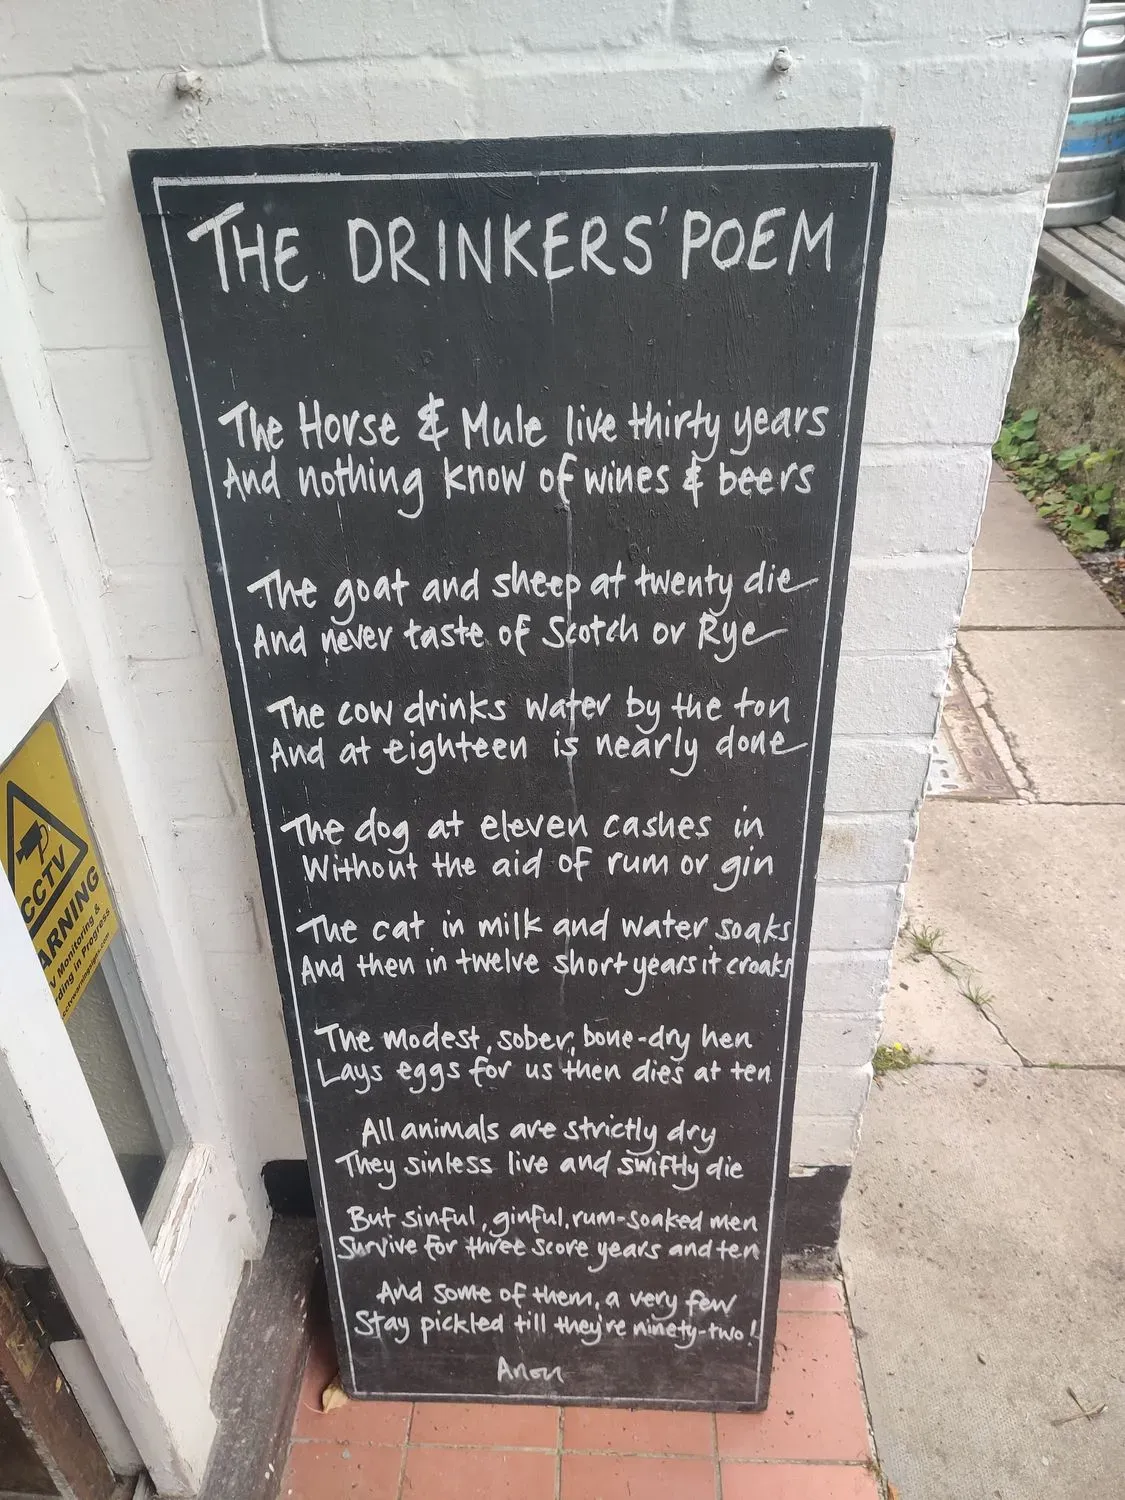 THE DRINKERS' POEM
The Horse & Mule live thirty years
And nothing know of wines & beers
The goat and sheep at twenty die
And never taste of Scotch or Rye
The cow drinks water by the ton
And at eighteen is nearly done
The dog at eleven cashes in
Without the aid of rum or gin
The cat in milk and water soaks
And then in twelve short years it croaks
The modest, sober, bone-dry hen
Lays eggs for us then dies at ten
All animals are strictly dry
They sinless live and swiftly die
But sinful, ginful, rum-soaked men
Survive for three score years and ten
And some of them, a very few
Stay pickled till they're ninety-two!
Anon
CCTV
ARNING
V Monitoring &
rding in Progress